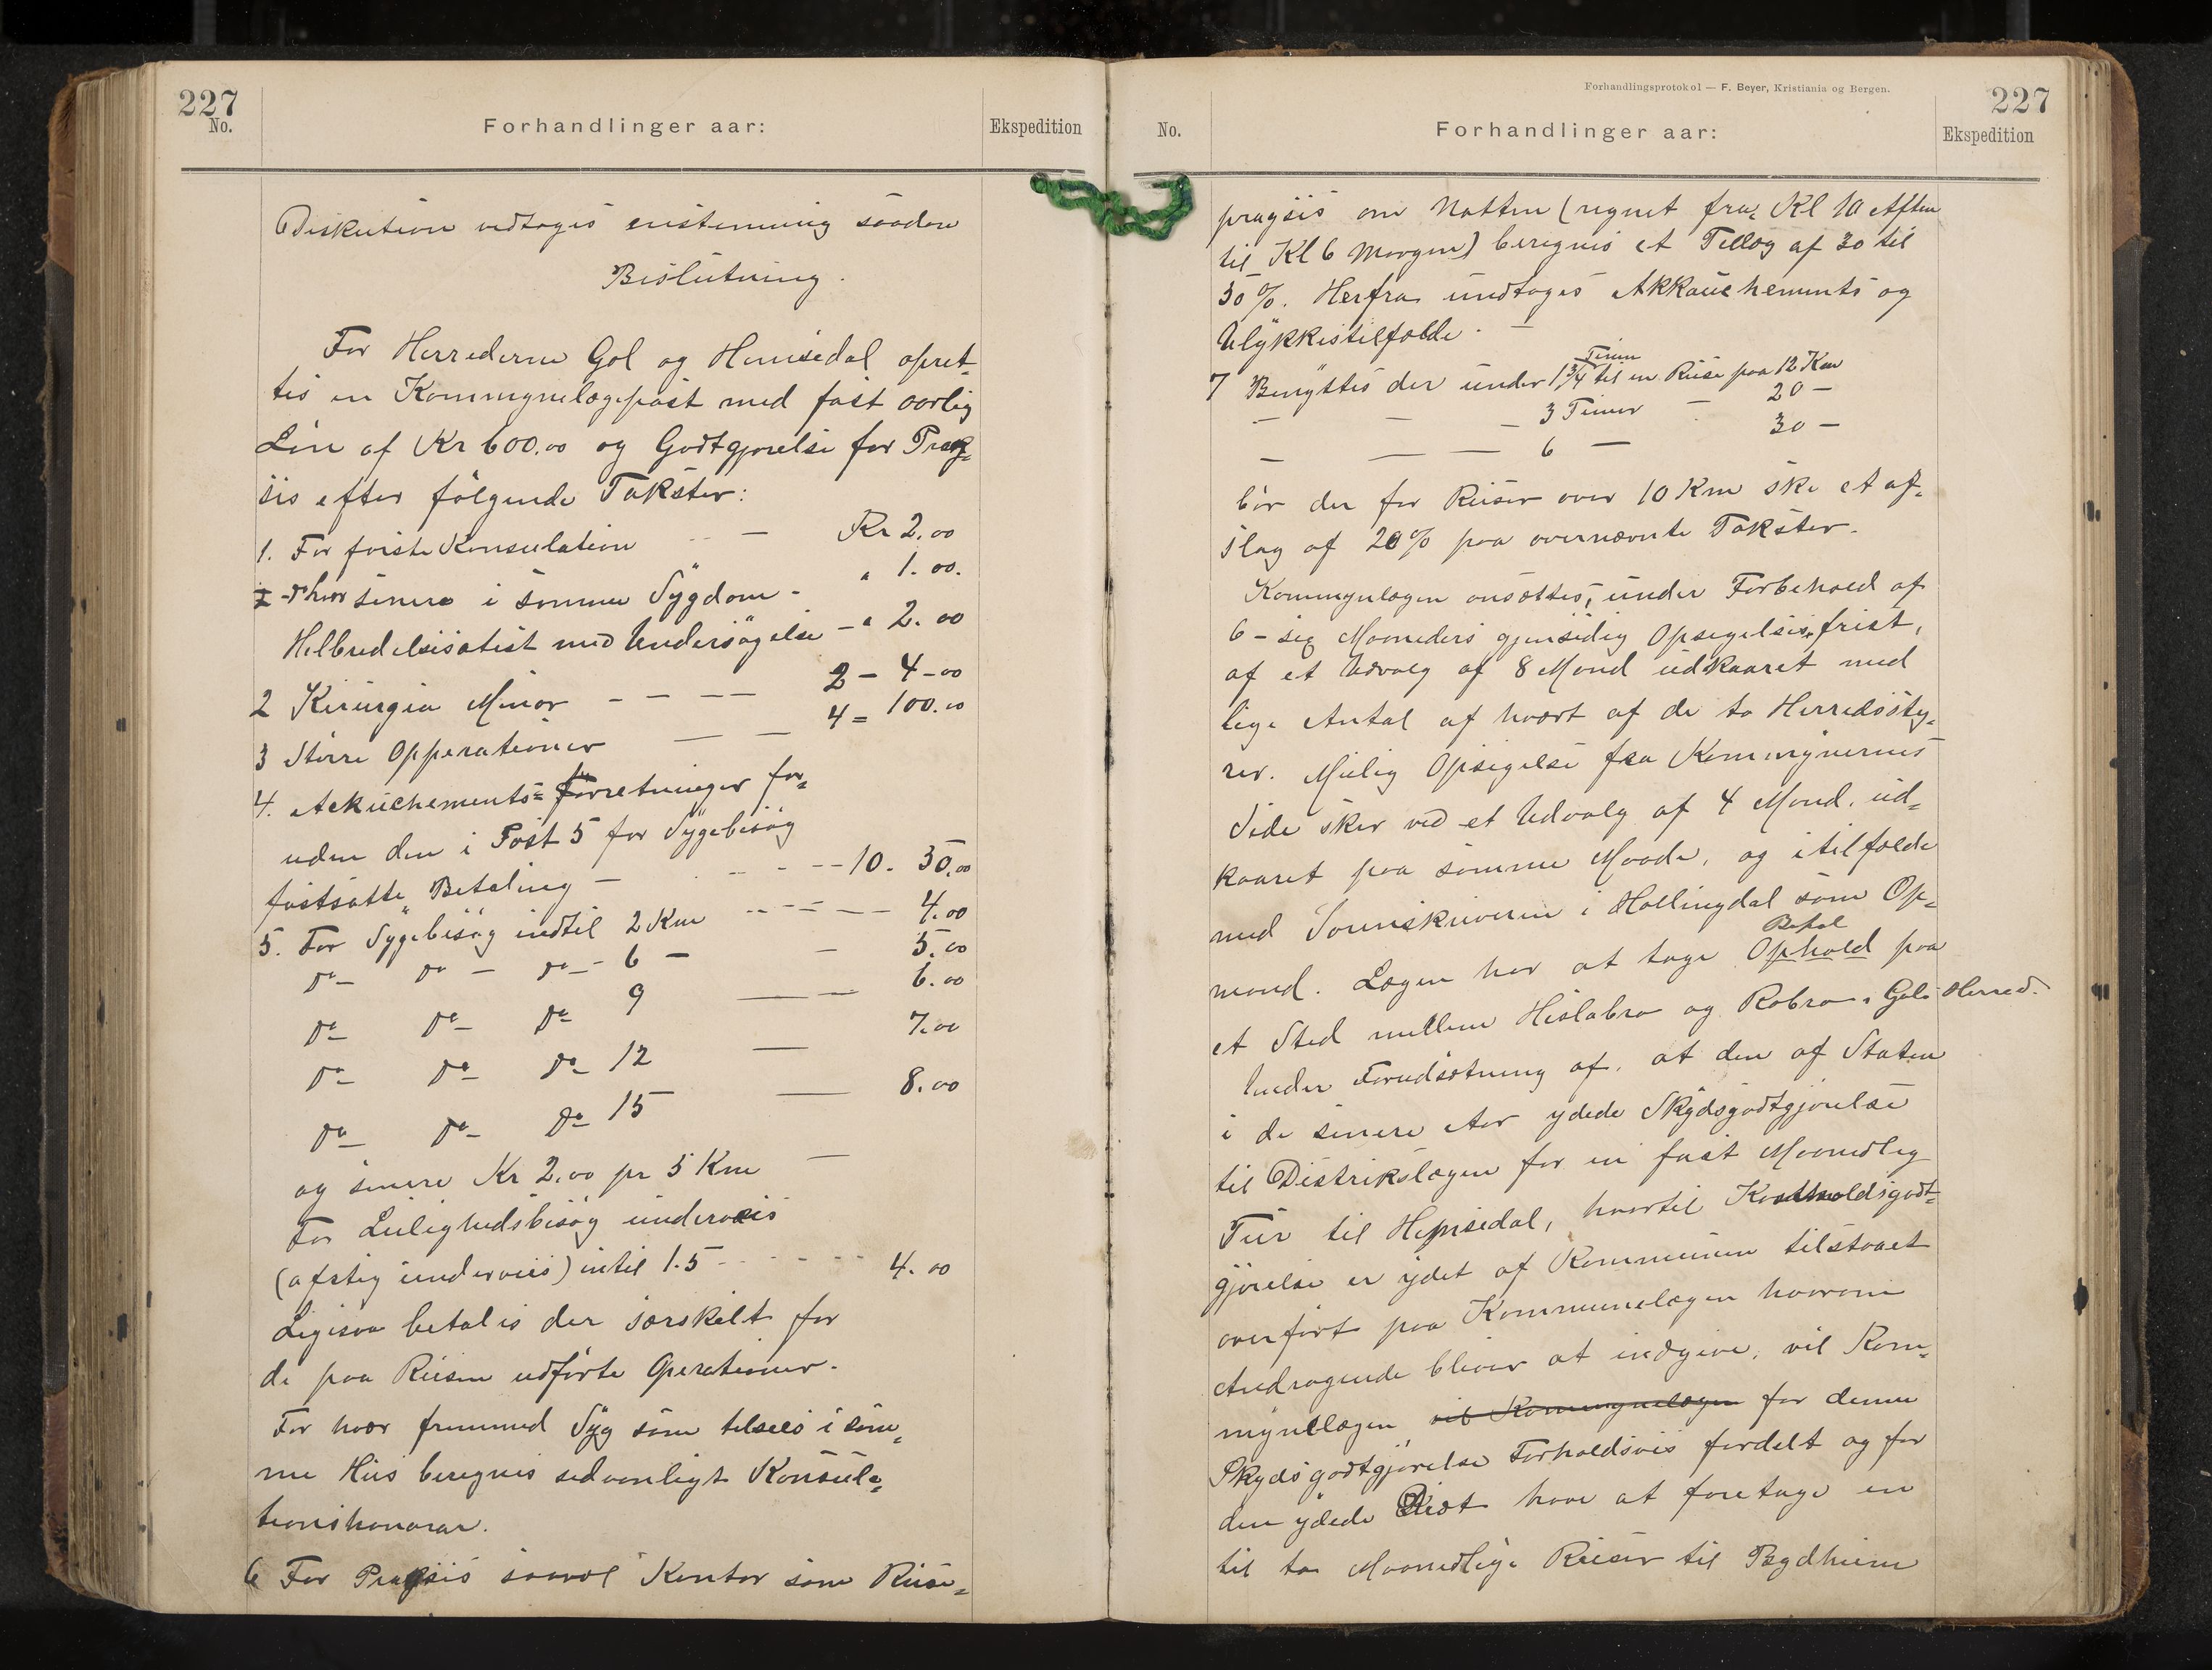 227
No.
Forhandlinger aar:
Ekspedition
Diskution vedtoges enstemmig saadan
Beslutning.
For Herrederne Gol og Hemsedal opret-
tes en Kommynelægepost med fast aarlig
Løn af Kr 600.00 og Godtgjørelse for Prag-
sis efter følgende Takster:
1. For første Konsulation — Kr 2.00
hver senere i samme Sygdom - " 1.00.
Helbredelsesatest med Undersøgelse - " 2.00
2 Kirurgia Minor - - - - 2 - 4-00
3 Større Opperationer — — 4 = 100.00
4. Ackuchements= forretninger for-
uden den i Post 5 for Sygebesøg
fastsatte Betaling - - - - 10. 30.00
5. For Sygebesøg indtil 2 Km - - - - 4.00
Do Do - Do - 6 - - 5.00
Do Do Do 9 — — 6.00
Do Do Do 12 — 7.00
Do Do Do 15 — 8.00
og senere Kr 2.00 pr 5 Km —
For Leilighedsbesøg underveis
(afstig underveis) intil 1.5 - - - - 4.00
Ligesaa betales der særskilt for
de paa Reisen udførte Operationer.
For hver fremmed Syg som tilsees i sam-
me Hus beregnes sedvanligt Konsula-
tionshonorar.
6 For Pragsis saavel Kontor som Reise-
Forhandlingsprotokol — F. Beyer, Kristiania og Bergen.
227
No.
Forhandlinger aar:
Ekspedition
pragsis om Natten (regnet fra Kl 10 Aften
til Kl 6 Morgen) beregnes et Tillæg af 30 til
50%. Herfra undtages Akkauchements og
Ulykkestilfælde. —
7 Benyttes der under 1 3/4 Timer til en Reise paa 12 Km
— — — 3 Timer — 20 —
— — — 6 — 30 —
bør der for Reiser over 10 Km ske et af-
slag af 20% paa overnævnte Takster.
Kommynlægen ansættes, under Forbehold af
6 - sex Maaneders gjensidig Opsigelsesfrist,
af et Udvalg af 8 Mænd udkaaret med
lige Antal af hvert af de to Herredssty-
rer. Mulig Opsigelse fra Kommynernes
Side sker ved et Udvalg af 4 Mænd, ud-
kaaret paa samme Maade, og i tilfælde
med Sorenskriveren i Hallingdal som Op-
mand. Lægen har at tage Ophold Bopæl paa
et Sted mellem Heslabro og Robro i Gols Herred.
Under Forudsætning af, at den af Staten
i de senere Aar ydede Skydsgodtgjørelse
til Distrikslægen for en fast Maanedlig
Tur til Hemsedal, hvortil Kostholdsgodt-
gjørelse er ydet af Kommunen tilstaaet
overført paa Kommunelægen hvorom
Andragende bliver at indgive, vil Kom-
mynelægen vil Kommynelægen for denne
Skydsgodtgjørelse Forholdsvis fordelt og for
den ydede Diæt have at foretage en
til to Maanedlige Reiser til Bygdheim